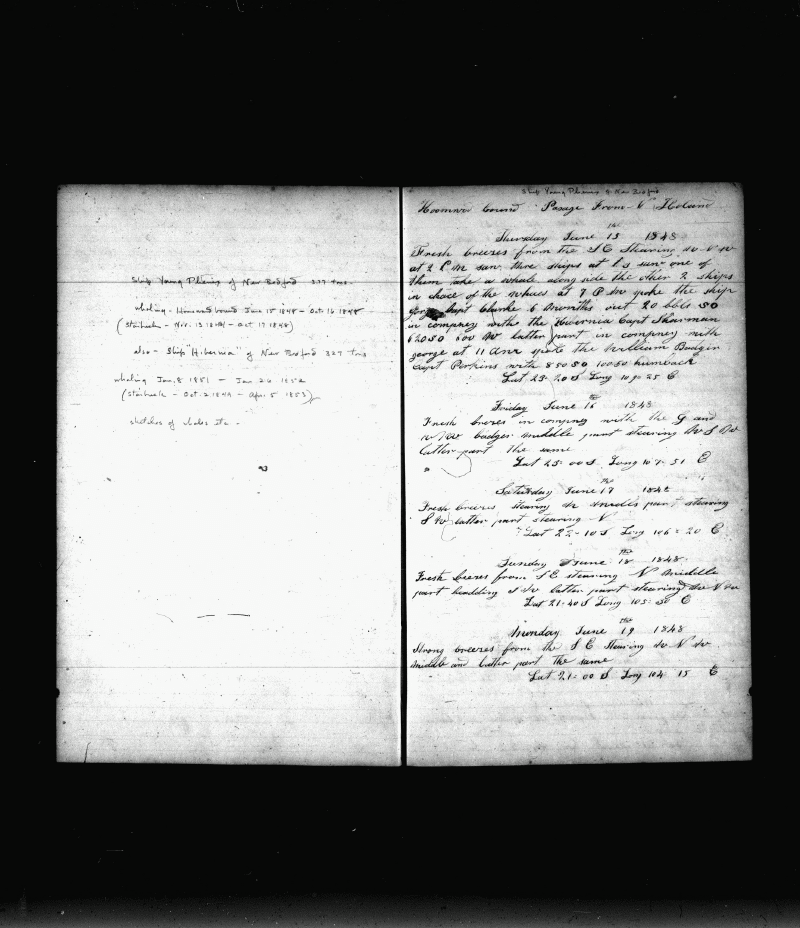 Ship Young Phenix of New Bedford 377 tons
whaling - Homeward bound June 15 1848 - Oct 16 1848
(Starbuck - Nov. 13 - Oct 17 1848)
also - Ship "Hibernia" of New Bedford 327 tons
whaling Jan. 8 1851 - Jan 26 1852
(Starbuck - Oct. 2 1849 - Apr. 5 1853)
sketches of whales Etc -
Ship Young Phenix of New Bedford
Hoomwed bound Pasage From N Holand
Thursday June 15 1848
Fresh breezes from the S E Stearing W N W
at 2 P M saw three ships at saw one of
them take a whale along side the other 2 ships
in chace of the whales at 7 P M spoke the ship
Capt Clarke 6 Months out 20 bbls SO
in compney with the Hivernia Capt Sharman
latter part in compney with
george at 11 spoke the William Badger
Capt Perkins with 850 SO 100 SO humback
Lat 23-20 S Long 109-25 E
Friday June 16th 1848
Fresh brezes in compney with the G and
W badger middle part stearing W S W
latter part the same
Lat 23-00 S Long 107-51 E
Saturday June 17th 1848
Fresh brezes stearing W middle part stearing
S W latter part stearing N
Lat 22-10 S Long 106-20 E
Sunday June 18th 1848
Fresh brezes from S E stearing N Middle
part headding S W latter part stearing W N W
Lat 21-40 S Long 105-30 E
Monday June 19th 1848
Strong brezes from the S E Stearing W N W
middle and latter part the same
Lat 21-00 S Long 104 15 E